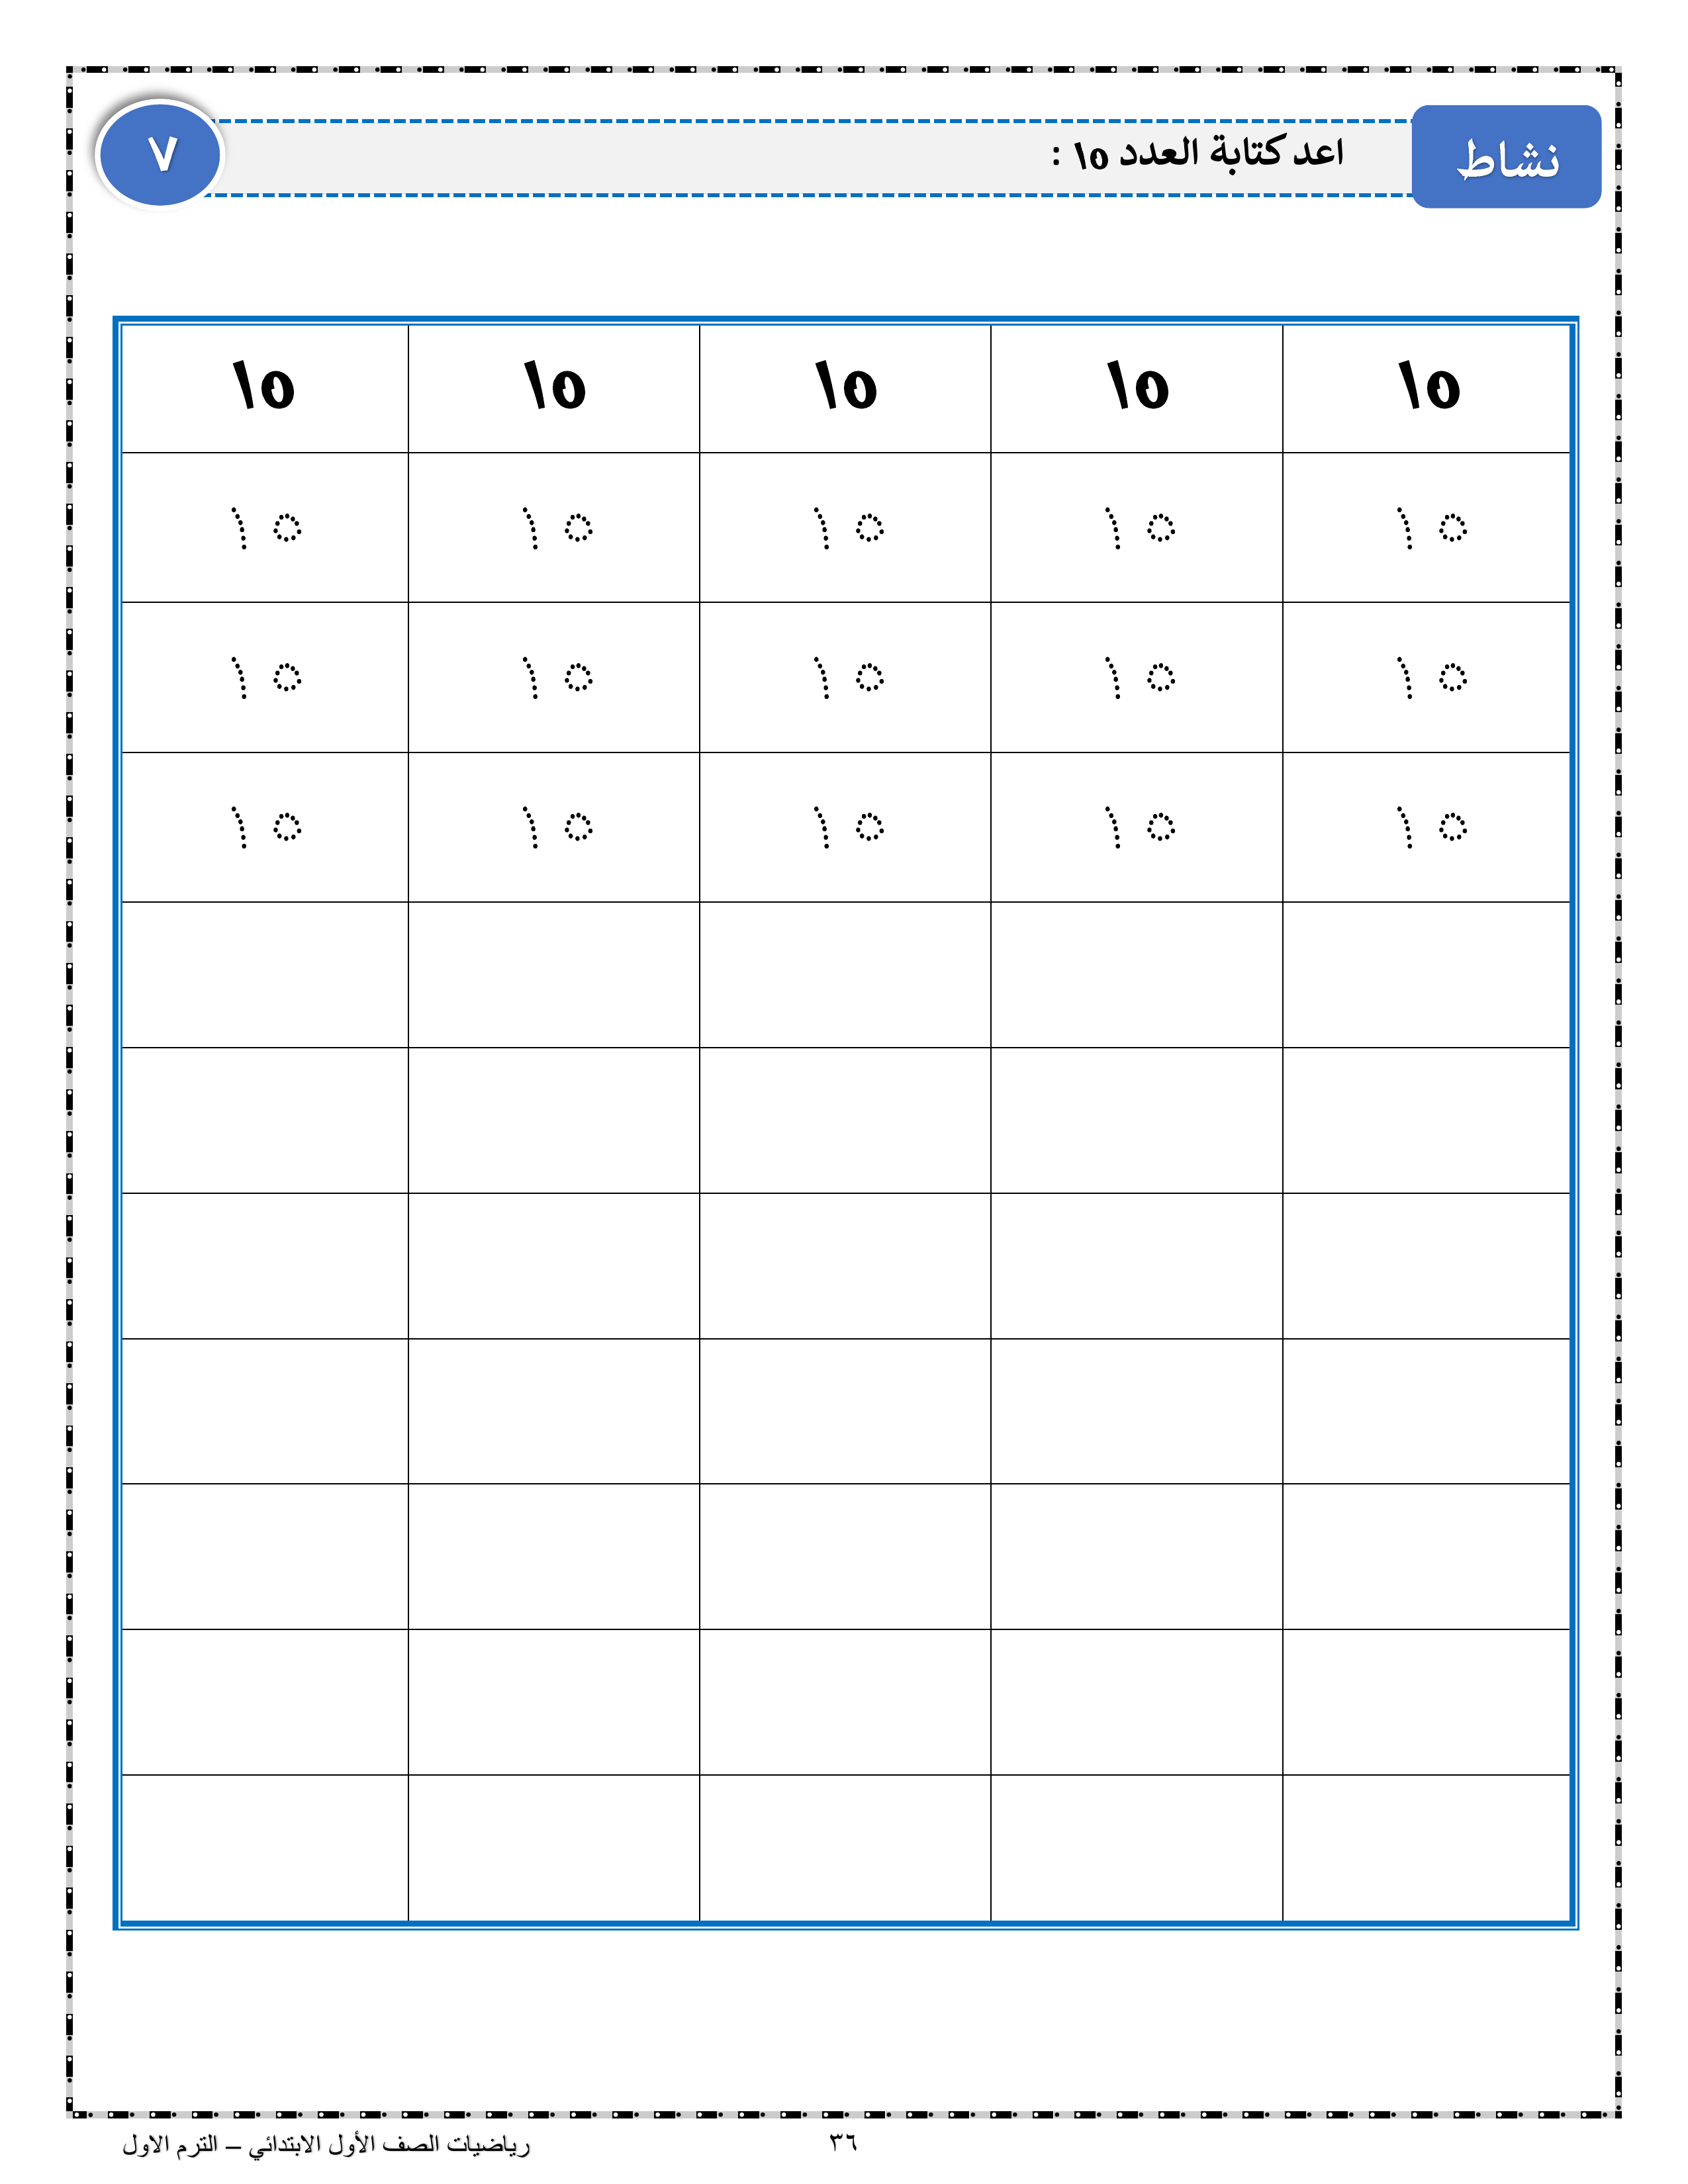 نشاط
اعد كتابة العدد ١٥ :
٧
١٥ ١٥ ١٥ ١٥ ١٥
١٥ ١٥ ١٥ ١٥ ١٥
١٥ ١٥ ١٥ ١٥ ١٥
١٥ ١٥ ١٥ ١٥ ١٥
٣٦
رياضيات الصف الأول الابتدائي – الترم الاول